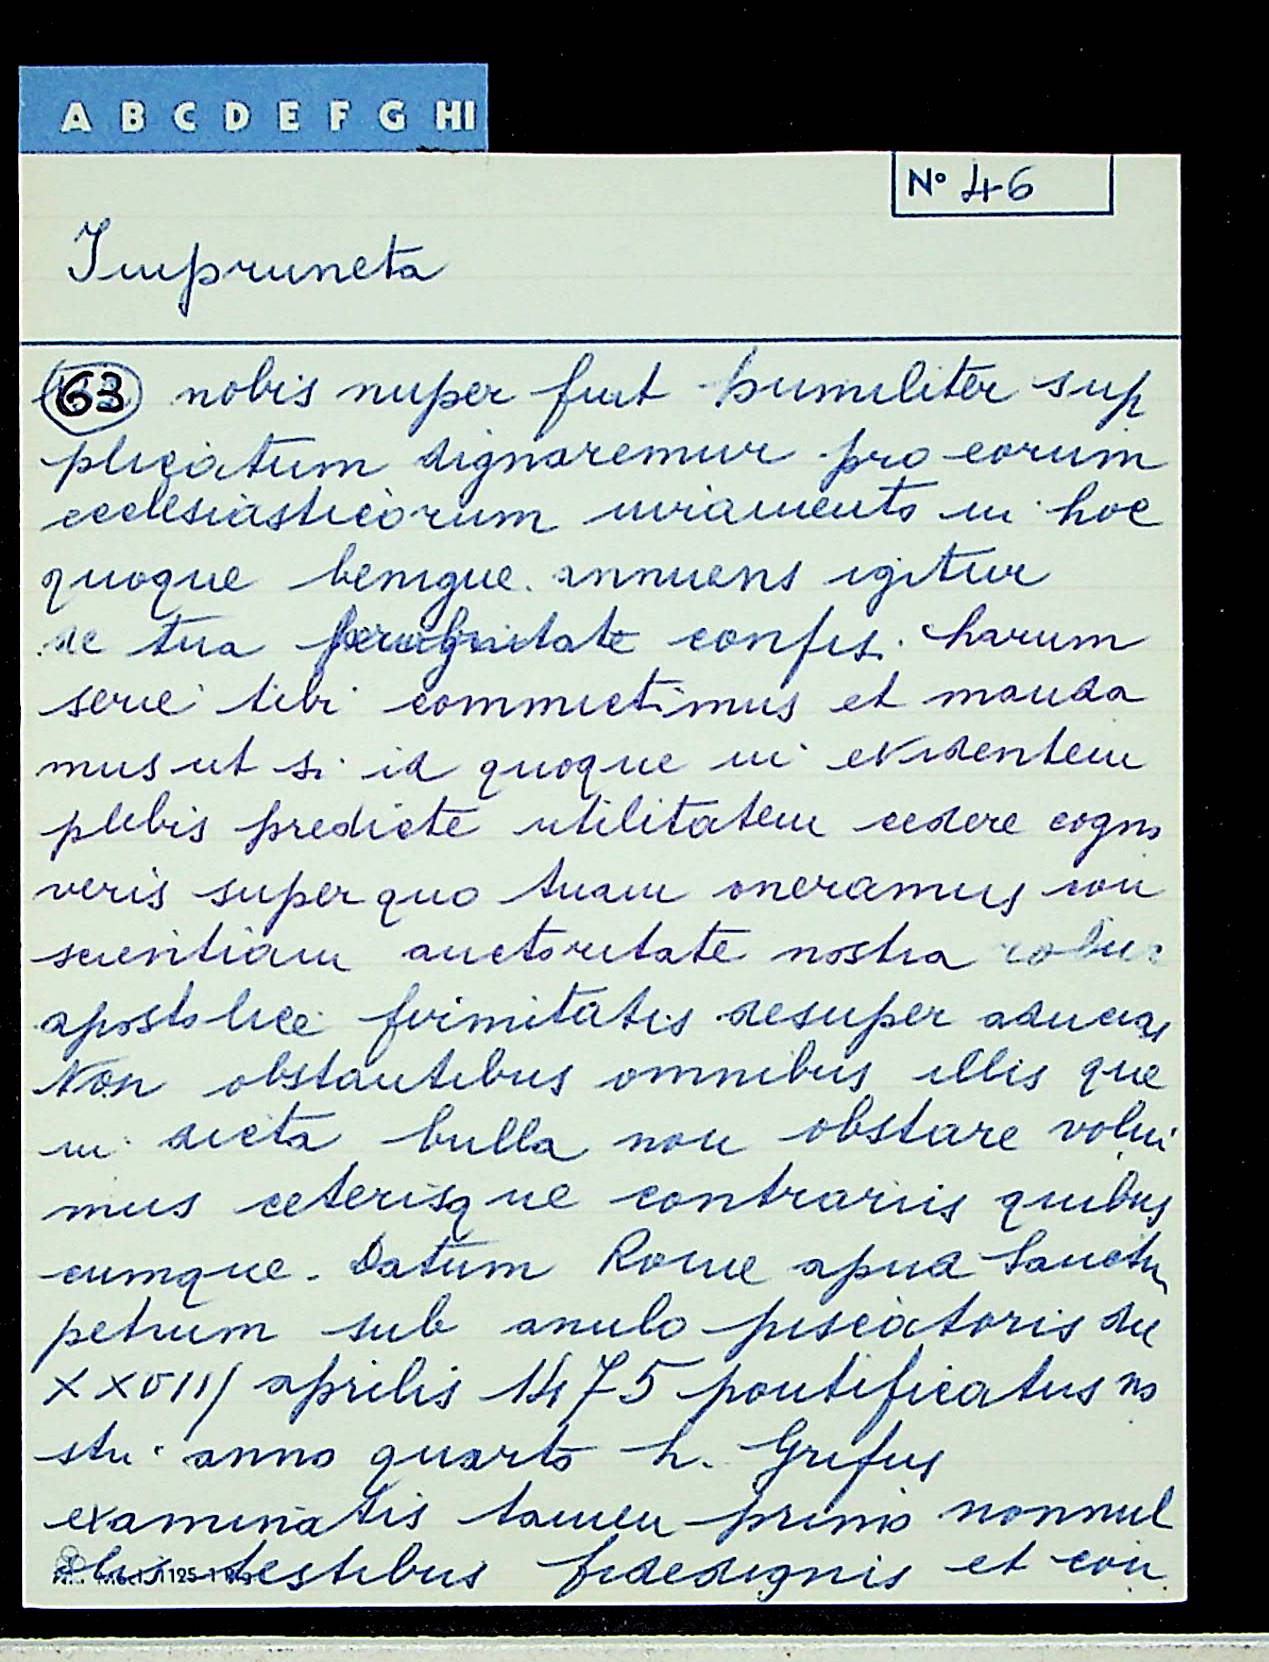 A B C D E F G HI
Nº 46
Impruneta
63 nobis nuper fuit humiliter sup
plicatum dignaremur pro eorum
ecclesiasticorum iuviamento in hoc
quoque benigne. annuens igitur
de tua confis. harum
serie tibi commictimus et manda
mus ut si id quoque in evidentem
plebis predicte utilitatem cedere cogno
veris super quo tuam oneramus con
scientiam auctoritate nostra robur
apostolice firmitatis desuper aducias
Non obstantibus omnibus illis que
in dicta bulla non obstare volui
mus ceterisque contrariis quibus
cumque. Datum Rome apud Sanctu
petrum sub anulo piscatoris die
XXVIII aprilis 1475 pontificatus no
stri anno quarto h. Grifus
examinatis tamen primo nonnul
lis testibus fidedignis et con